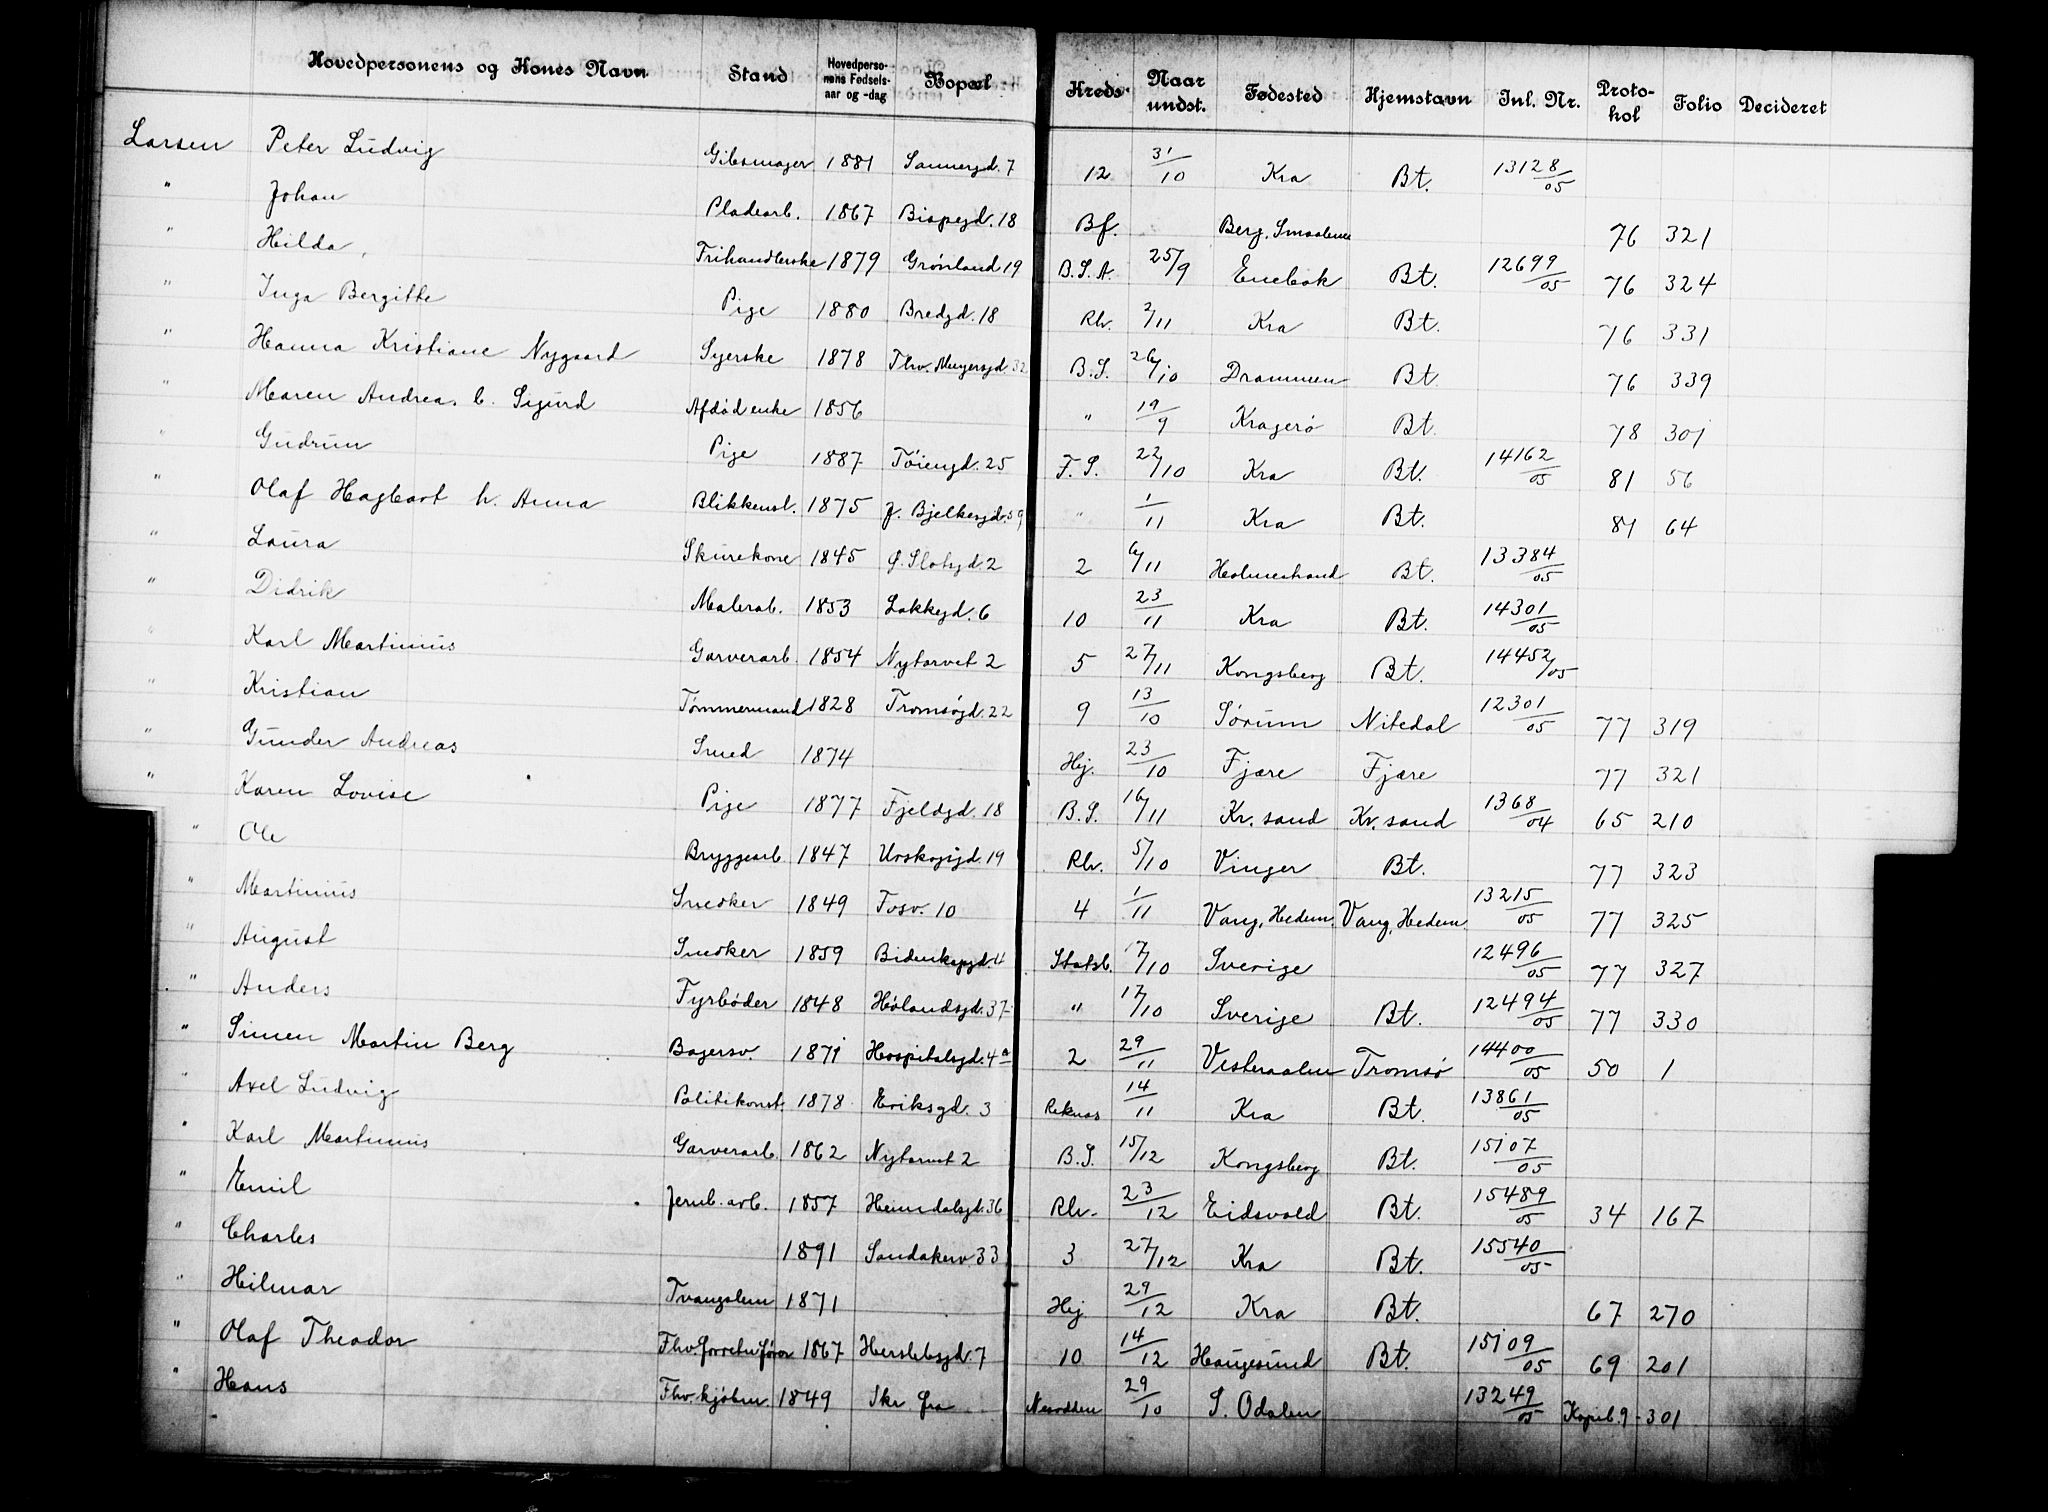 Hovedpersonens og Kones Navn Stand Hovedperso-nens Fødsels-aar og -dag Bopæl Kreds Naar undst. Fødested Hjemstavn Inl. Nr. Proto-kol Folio Decideret
Larsen Peter Ludvig Gibsmager 1881 Sannergd. 7 12 31/10 Kra Bt. 13128/05
" Johan Pladearb. 1867 Bispegd. 18 Bf. Berg, Smaalene 76 321
" Hilda Frihandlerske 1879 Grønland 19 B.S.A. 25/9 Enebak Bt. 12699/05 76 324
" Inga Bergitte Pige 1880 Bredgd. 18 Rh. 2/11 Kra Bt. 76 331
" Hanna Kristiane Nygaard Syerske 1878 Thv. Meyersgd. 32 B.S. 26/10 Drammen Bt. 76 339
" Maren Andrea. b. Sigurd Afdød enke 1856 " 19/9 Kragerø Bt. 78 301
" Gudrun Pige 1887 Tøiengd. 25 F.S. 22/10 Kra Bt. 14162/05 81 56
" Olaf Hagbart h. Anna Blikkensl. 1875 J. Bjelkesgd. 59 " 1/11 Kra Bt. 81 64
" Laura Skurekone 1845 Ø. Slotsgd. 2 2 6/11 Holmestrand Bt. 13384/05
" Didrik Malerab. 1853 Lakkegd. 6 10 23/11 Kra Bt. 14301/05
" Karl Martinius Garverarb. 1854 Nytorvet 2 5 27/11 Kongsberg Bt. 14452/05
" Kristian Tømmermand 1828 Tromsøgd. 22 9 13/10 Sørum Nitedal 12301/05 77 319
" Gunder Andreas Smed 1874 Hej. 23/10 Fjære Fjære 77 321
" Karen Lovise Pige 1877 Fjeldgd. 18 B.S. 16/11 Kr.sand Kr.sand 1368/04 65 210
" Ole Bryggearb. 1847 Urskogsgd. 19 Rh. 5/10 Vinger Bt. 77 323
" Martinius Snedker 1849 Fosv. 10 4 1/11 Vang, Hedem. Vang, Hedem. 13215/05 77 325
" August Snedker 1859 Bidenkapsgd. 4 Statsb. 17/10 Sverige 12496/05 77 327
" Anders Fyrbøder 1848 Hølandsgd. 37 " 17/10 Sverige Bt. 12494/05 77 330
" Simen Martin Berg Bagersv. 1871 Hospitalsgd. 4a 2 29/11 Vesteraalen Tromsø 14400/05 50 1
" Axel Ludvig Politikonst. 1878 Eriksgd. 3 Reknas 14/11 Kra Bt. 13861/05
" Karl Martinius Garverarb. 1862 Nytorvet 2 B.S. 15/12 Kongsberg Bt. 15107/05
" Emil Jernb. arb. 1857 Heimdalsgd. 36 Rh. 23/12 Eidsvold Bt. 15489/05 34 167
" Charles 1891 Sandakerv. 33 3 27/12 Kra Bt. 15540/05
" Hilmar Tvangslem 1871 Hej 29/12 Kra Bt. 67 270
" Olaf Theodor Fhv. forretn.fører 1867 Herslebsgd. 7 10 14/12 Haugesund Bt. 15109/05 69 201
" Hans Fhv. kjøbm 1849 Skr fra Nesodden 29/10 S. Odalen 13249/05 Kopieb. 9 - 301